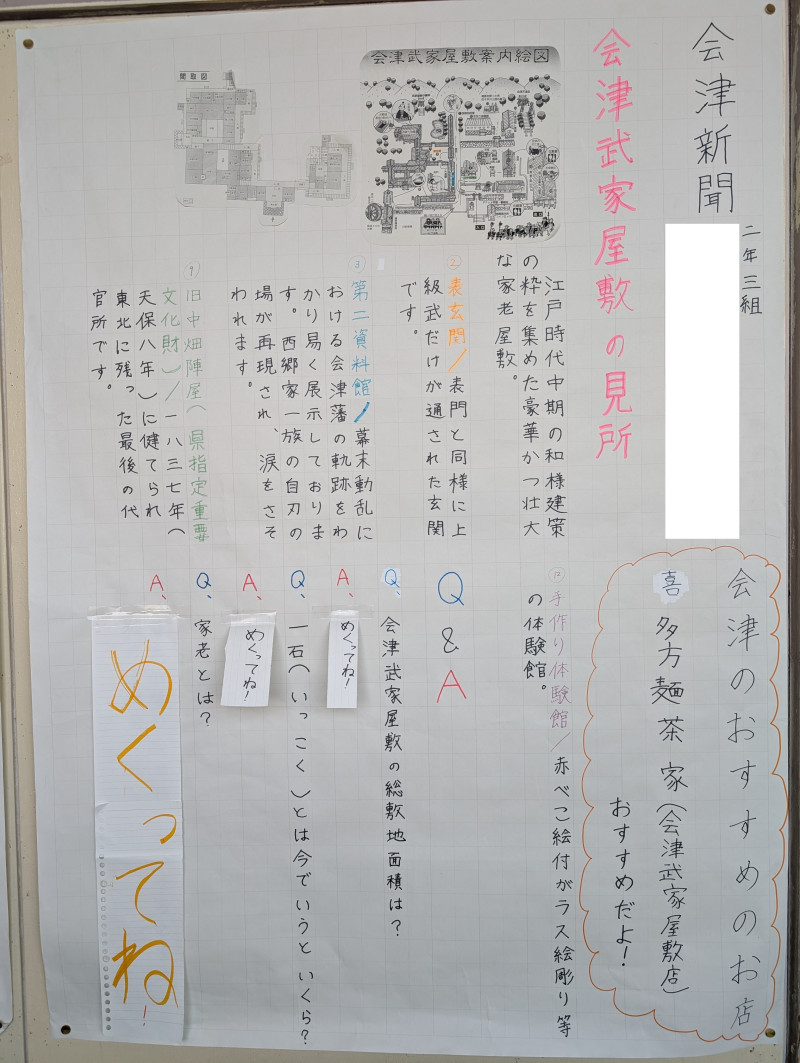 会津新聞
二年三組
会津武家屋敷の見所
会津武家屋敷案内絵図
間取図
江戸時代中期の和様建築
の粋を集めた豪華かつ壮大
な家老屋敷。
②表玄関/表門と同様に上
級武だけが通された玄関
です。
③第二資料館/幕末動乱に
おける会津藩の軌跡をわ
かり易く展示しておりま
す。西郷家一族の自刃の
場が再現され、涙をさそ
われます。
旧中畑陣屋(県指定重要
文化財)/一八三七年(
天保八年)に健てられ
東北に残った最後の代
官所です。
会津のおすすめのお店
喜多方麺茶家(会津武家屋敷店)
おすすめだよ!
手作り体験館/赤べこ絵付がラス絵彫り等
の体験館。
Q&A
Q、会津武家屋敷の総敷地面積は?
A、めくってね!
Q、一石(いっこく)とは今でいうといくら?
A、めくってね!
Q、家老とは?
A、めくってね!